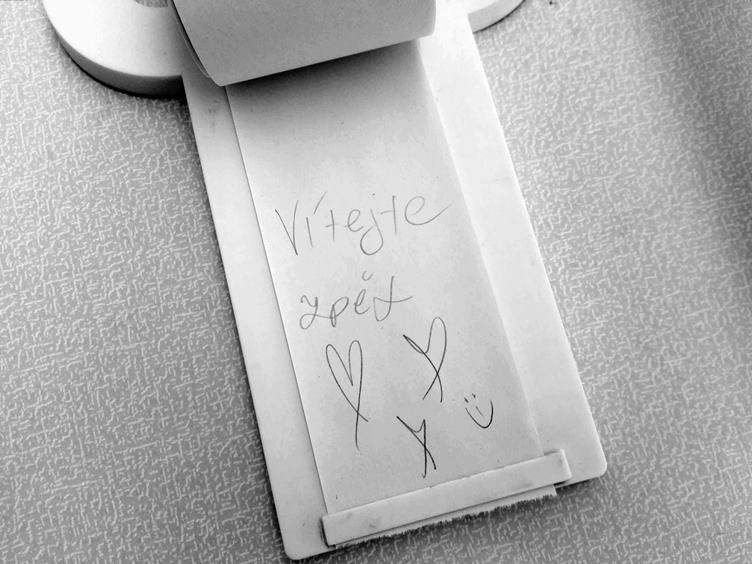 Vítejte
zpět